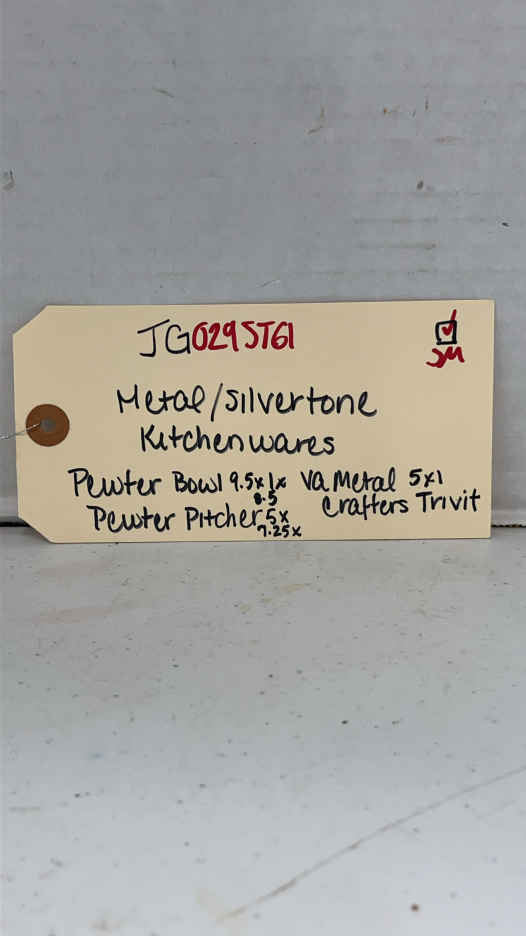 JG029STG1
JM
Metal/Silvertone
Kitchenwares
Pewter Bowl 9.5x1x
8.5
VA Metal 5x1
Crafters Trivit
Pewter Pitcher 5x
7.25x